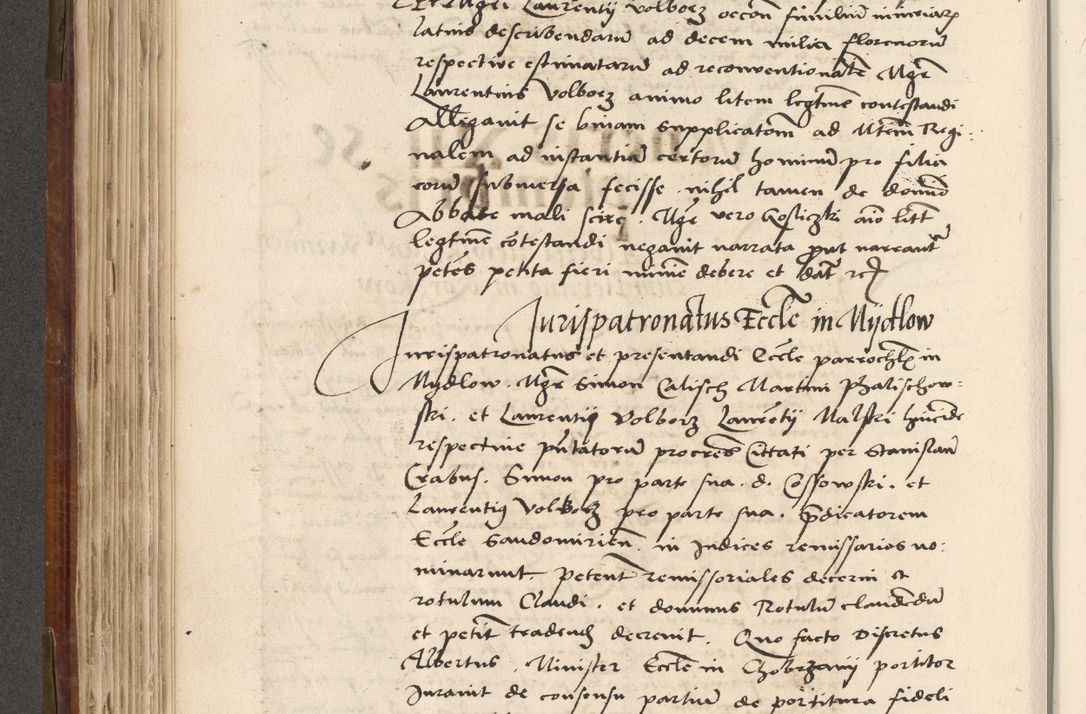 Laurentij Volborz occõn similiũ iniuriarꝫ
latius describendarũ ad decem milia florenorũ
respective estimatarũ ad reconventionale Mgr̃
Laurentius Volborz animo litem legtime contestandi
Allegavit se binam Supplicatoem ad Mtem Regi:
nalem ad instantiã certorũ hominum pro filia
eorũ submersa fecisse. nihil tamen de domõ
Abbate mali scire. Mgr̃ vero Gosliczki aĩo litt
legtime cõtestandi negavit narrata put narrantr
petens petita fieri minie debere et Dat rc
Jurispatronatus Eccłe in Mydlow
Jurispatronatus et presentandi Eccłe parrochłis in
Mydlow. Mgr̃ Simon Calisch Martini Phalischow:
ski. et Laurentij Volborz Laurẽtij Malski hincinde
respective pñtatorũ procrẽs Citati per Stanislaũ
Crabus. Simon pro parte sua. d. Ossowski. et
Laurentiꝯ Volborz pro parte sua. p̃dicatorem
Eccłe Sandomirieñ. in Judices remissarios no:
minarunt. petent remissoriales decerni et
rotulum Claudi. et dominus Rotulũ claudẽdũ
et petit tradendꝫ decrevit. Quo facto Discretus
Albertus. Minister Eccłe in Chobrzanij portitor
Juravit de consensu partiũ de portitura fideli